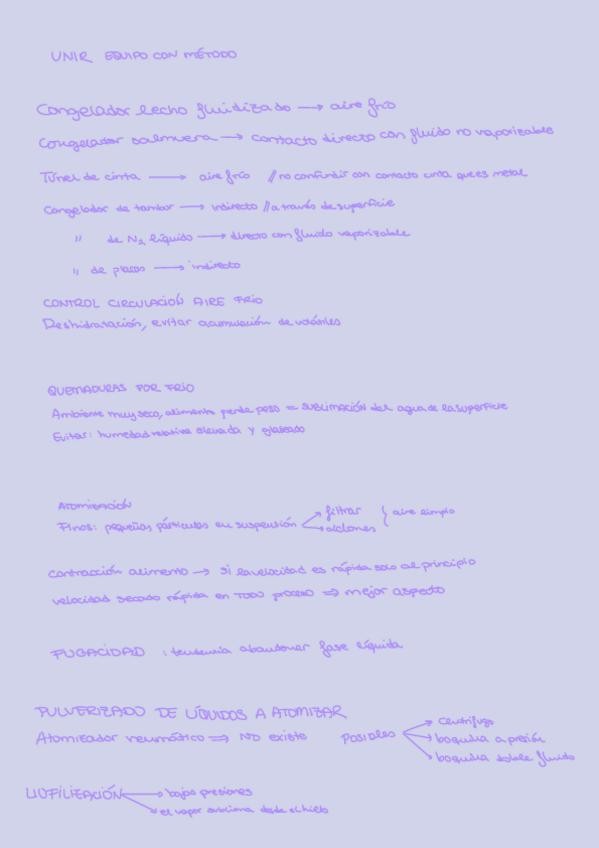 UNIR EQUIPO CON MÉTODO
Congelador lecho fluidizado → aire frío
Congelador salmuera → contacto directo con fluido no vaporizable
Túnel de cinta → aire frío // no confundir con contacto cinta que es metal
Congelador de tambor → indirecto // a través de superficie
" de N₂ líquido → directo con fluido vaporizable
" de placas → indirecto
CONTROL CIRCULACIÓN AIRE FRÍO
Deshidratación, evitar acumulación de volátiles
QUEMADURAS POR FRÍO
Ambiente muy seco, alimento pierde peso = SUBLIMACIÓN del agua de la superficie
Evitar: humedad relativa elevada y glaseado
ATOMIZACIÓN
Finos: pequeñas partículas en suspensión → filtrar } aire limpio
→ ciclones
Contracción alimento → si la velocidad es rápida solo al principio
velocidad secado rápida en TODO proceso ⇒ mejor aspecto
FUGACIDAD : tendencia abandonar fase líquida
PULVERIZADO DE LÍQUIDOS A ATOMIZAR
Atomizador neumático ⇒ NO existe POSIBLES → Centrífugo
→ boquilla a presión
→ boquilla doble fluido
LIOFILIZACIÓN → bajas presiones
→ el vapor sublima desde el hielo